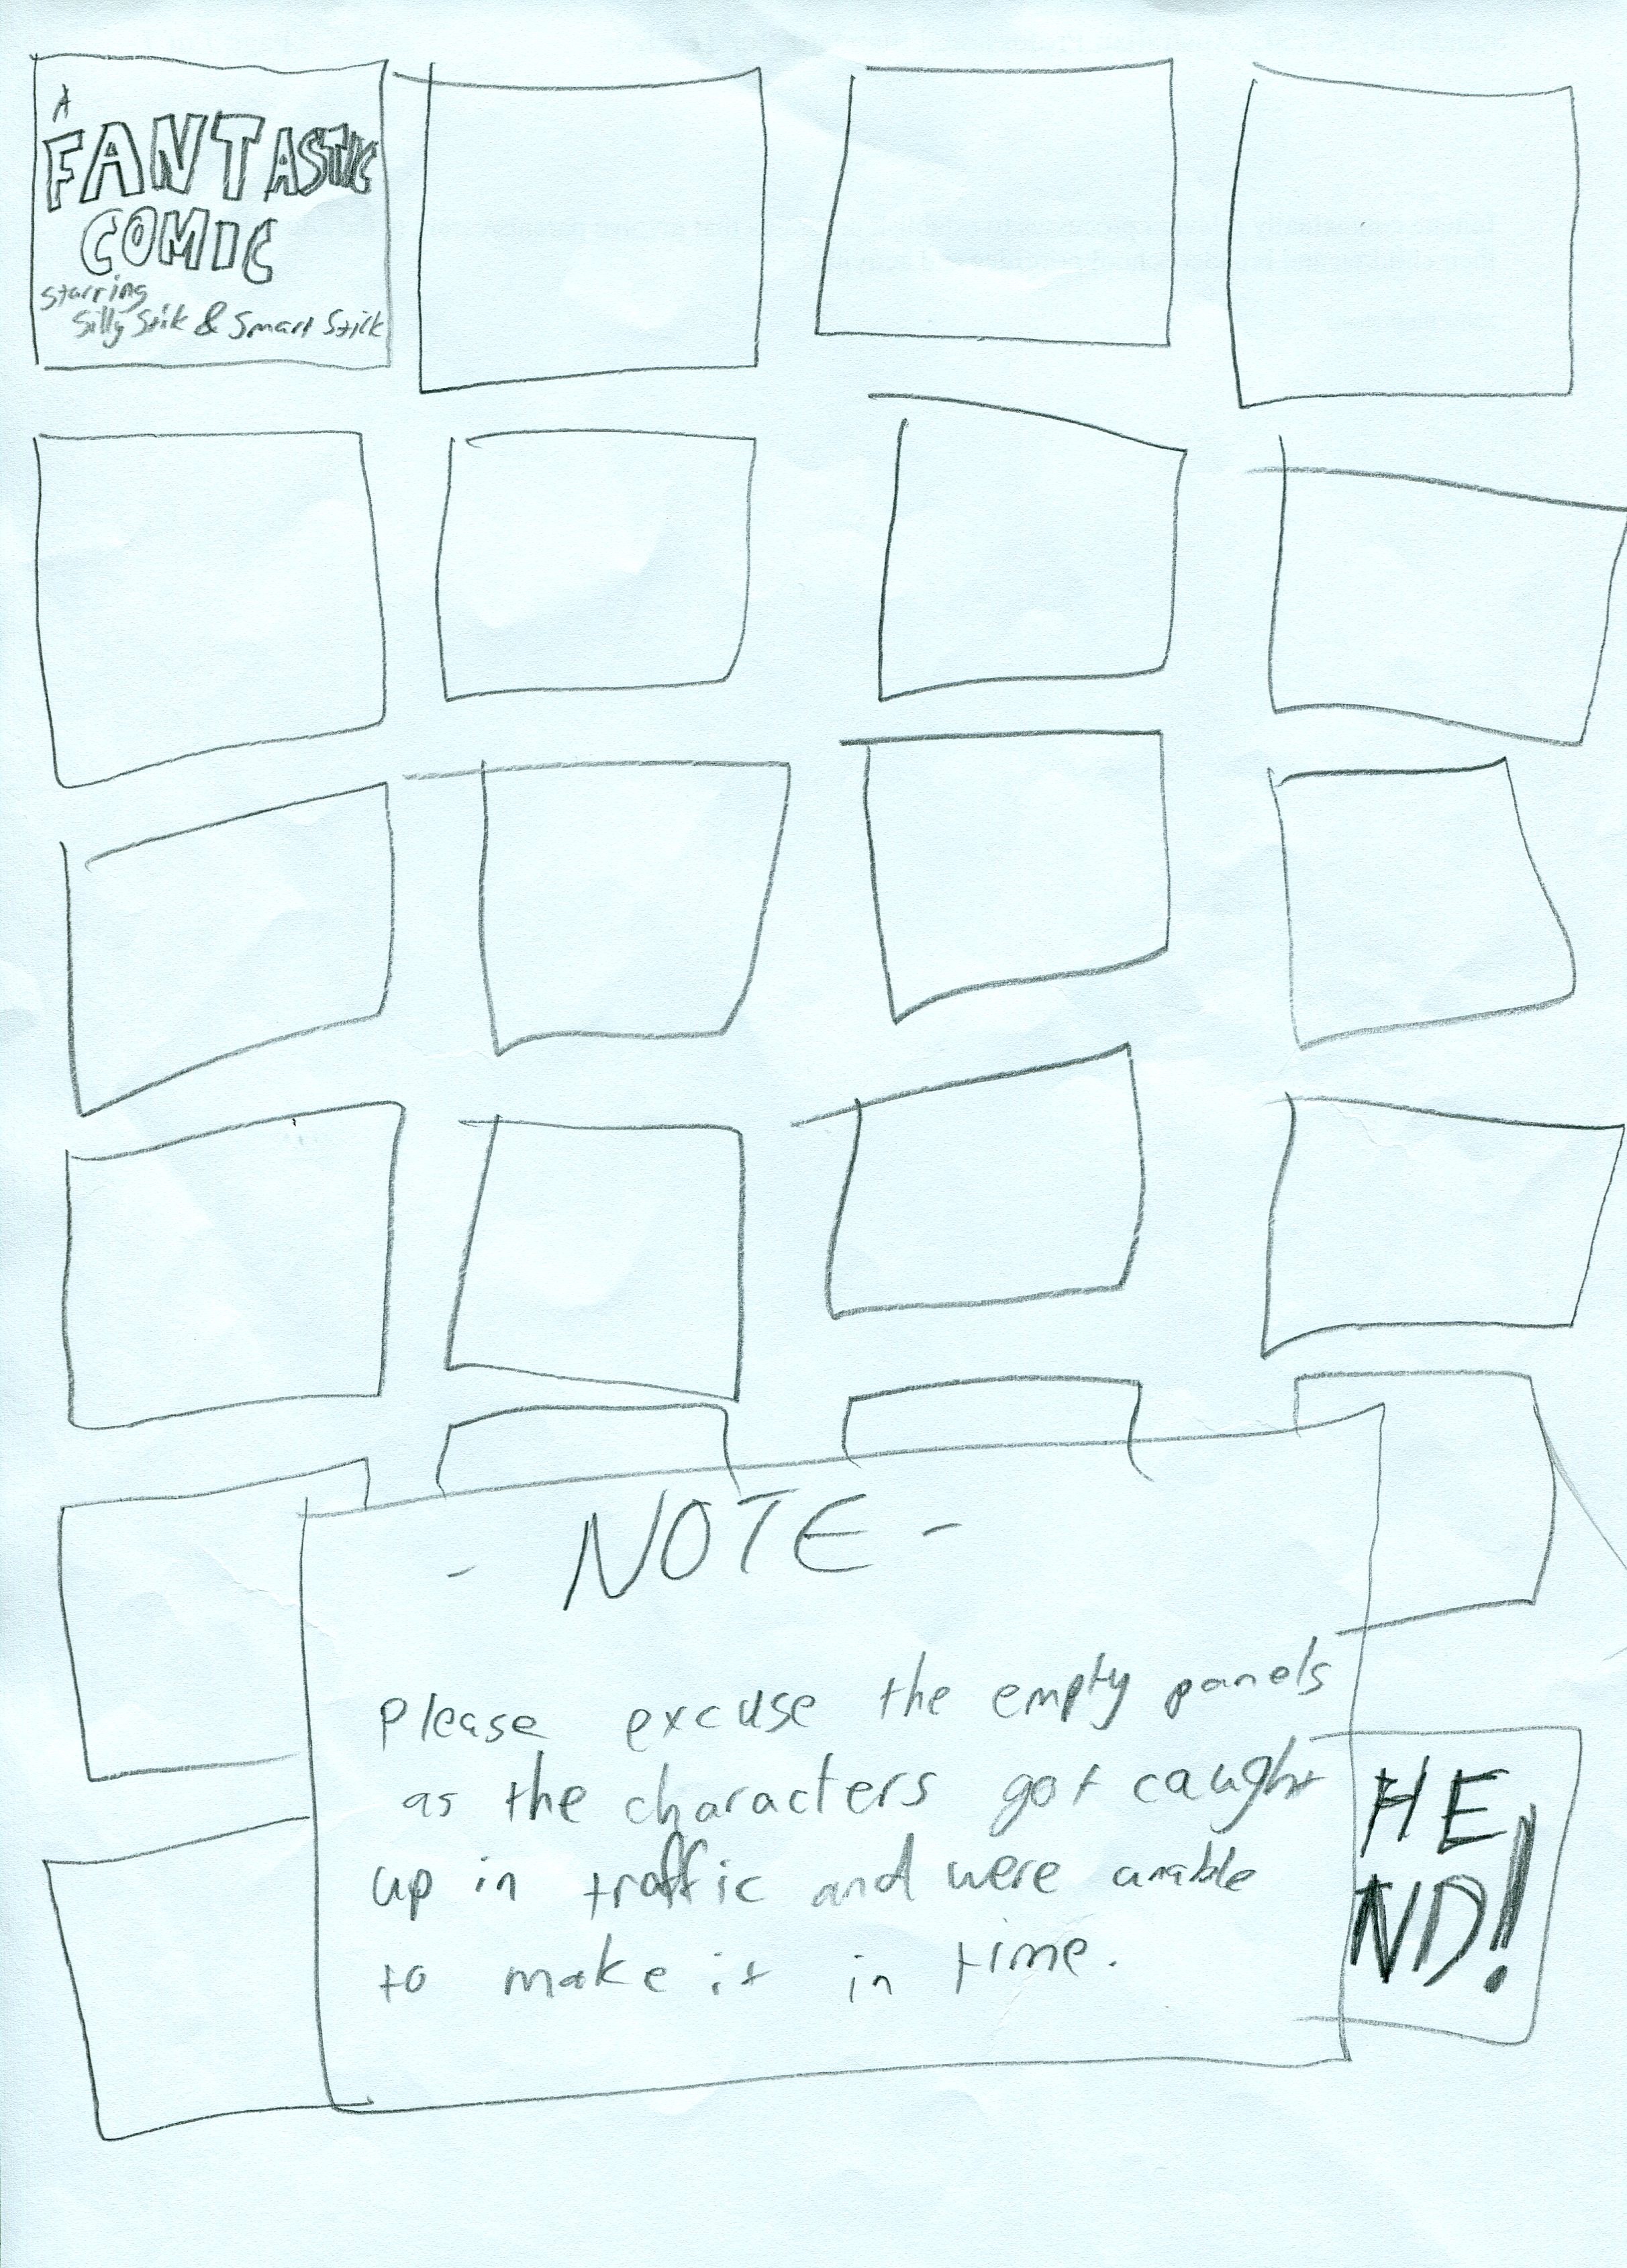 A
FANTASTIC
COMIC
starring
Silly Stik & Smart Stick
- NOTE -
Please excuse the empty panels
as the characters got caught
up in traffic and were unable
to make it in time.
HE
ND!